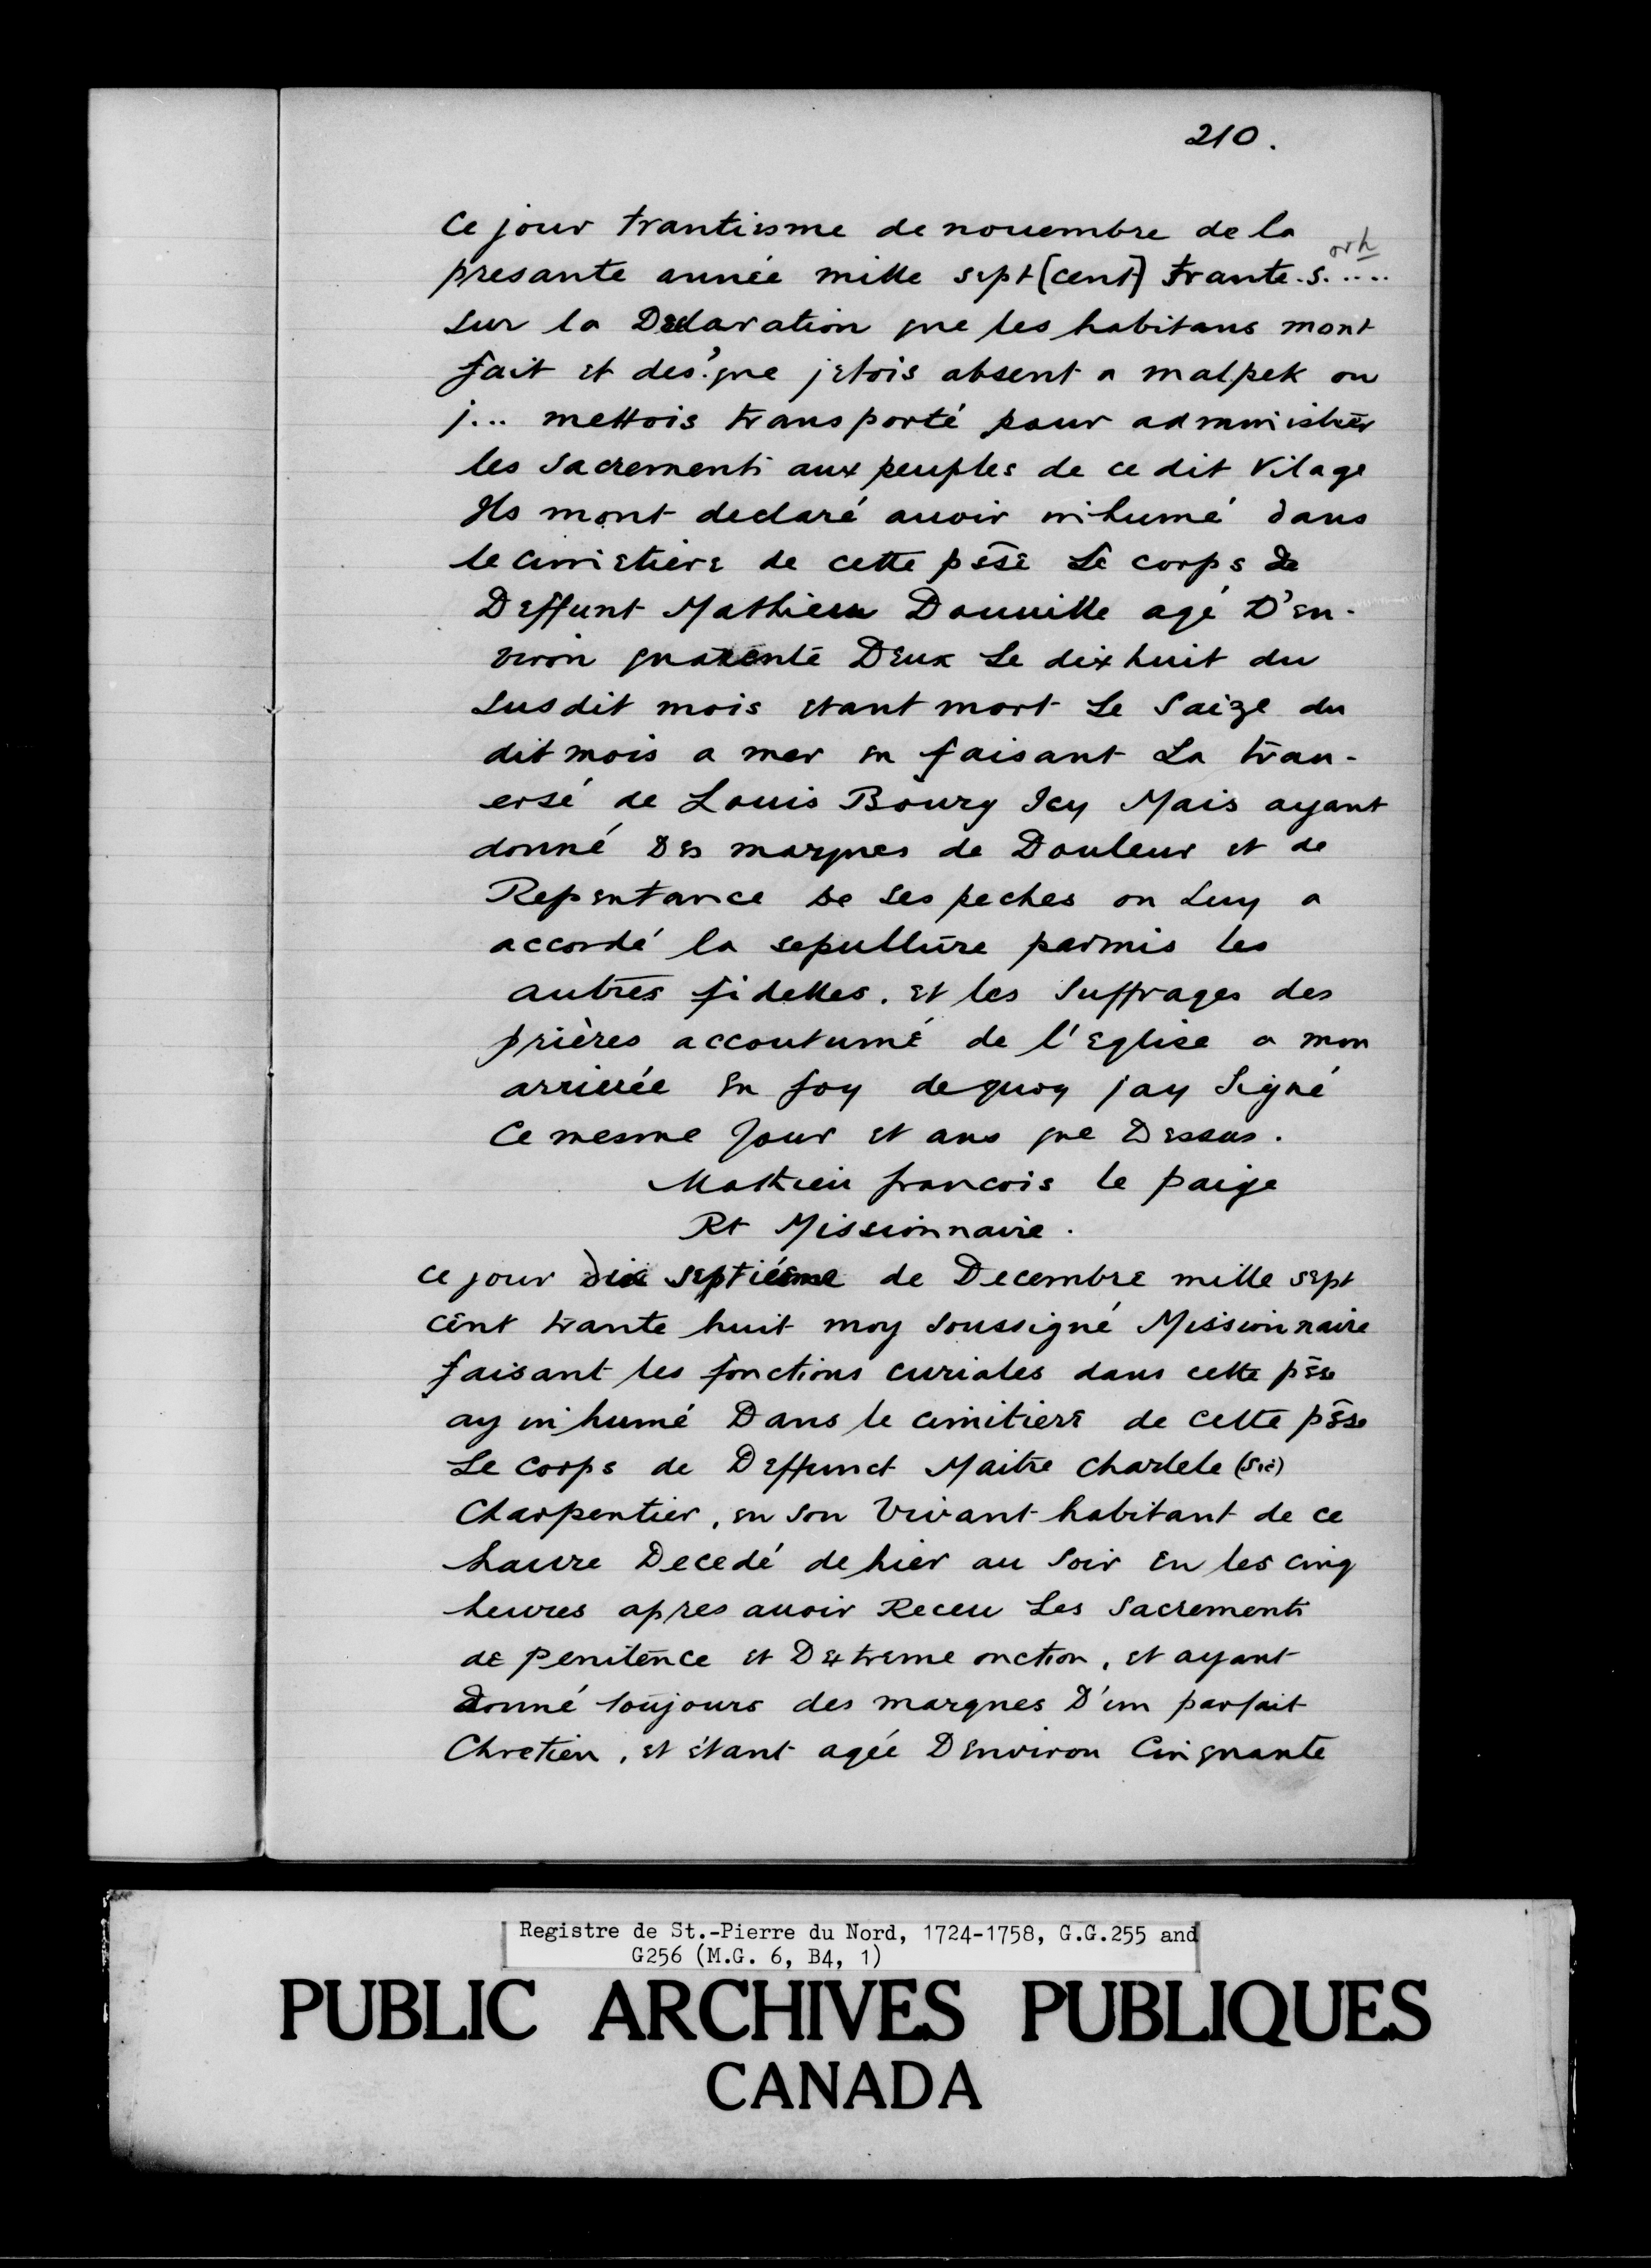 210.
Ce jour trantiesme de nouembre de la
presante année mille sept [cent] trante. s. ....
sur la Declaration que les habitans mont
fait et des.' que jetois absent a malpek ou
j... mettois transporté pour administrer
les sacrements aux peuples de ce dit Vilage
Ils mont declaré auoir inhumé dans
le cimetiere de cette pŝse Le corps de
Deffunt Mathieu Douuille agé D'en-
viron quarente Deux Le dixhuit du
susdit mois etant mort Le Saize du
dit mois a mer en faisant La trau-
ersé de Louis Bourg Icy Mais ayant
donné Des marques de Douleur et de
Repentance De ses peches on Luy a
accordé la sepulture parmis les
autres fidelles. et les suffrages des
prières accoutumé de l'Eglise a mon
arriuée En foy dequoy jay Signé
Ce mesme Jour et ans que Dessus.
Mathieu francois le paige
Rt Missionnaire.
Ce jour dix septiéme de Decembre mille sept
cent trante huit moy soussigné Missionnaire
faisant les fonctions curiales dans cette pŝse
ay inhumé Dans le cimitiere de cette pŝse
Le corps de Deffunct Maitre Charlele (sic)
Charpentier, en son Vivant habitant de ce
haure Decedé de hier au soir En les cinq
heures apres auoir Receu Les Sacrements
de penitence et Dextreme onction, et ayant
donné toujours des marques D'un parfait
Chretien, et étant agée Denviron Cinquante
Registre de St.-Pierre du Nord, 1724-1758, G.G.255 and
G256 (M.G. 6, B4, 1)
PUBLIC ARCHIVES PUBLIQUES
CANADA